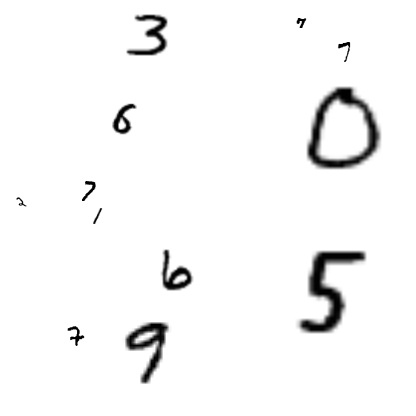 3
7
7
6
0
2
7
1
6
5
7
9